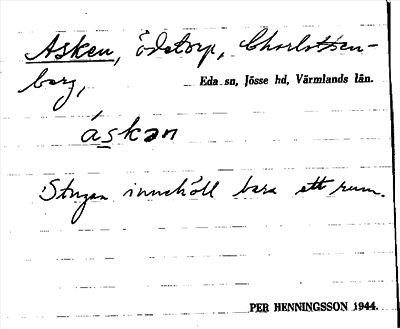 Asken, Ödetorp, Charlotten-
berg,
Eda sn, Jösse hd, Värmlands län.
áskan
Stugan innehöll bara ett rum.
PER HENNINGSSON 1944.